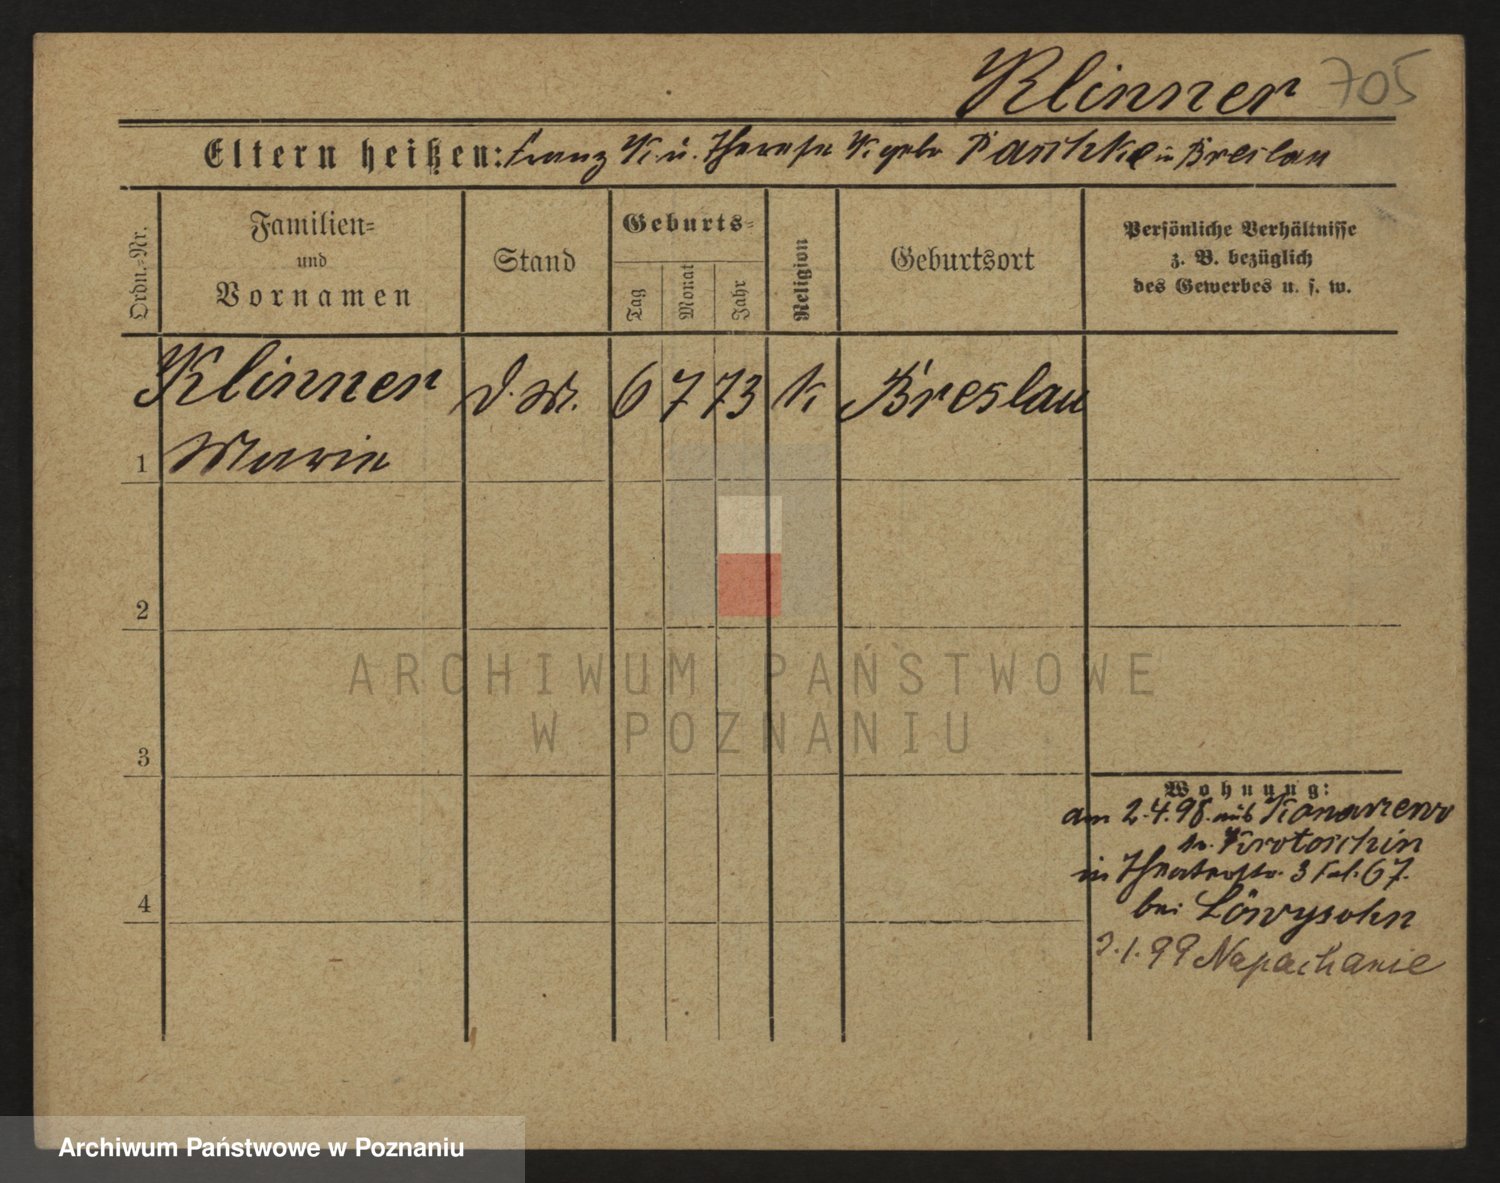 Klinner 705
Eltern heißen: Franz K. u. Therese K. geb. Paschke in Breslau
Ordn.-Nr.
Familien-
und
Vornamen
Stand
Geburts-
Tag
Monat
Jahr
Religion
Geburtsort
Persönliche Verhältnisse
z. B. bezüglich
des Gewerbes u. s. w.
Klinner D. M. 6 7 73 k. Breslau
1 Marie
2
ARCHIWUM PAŃSTWOWE
W POZNANIU
3
Wohnung:
am 2.4.98. aus
Kr. Krotoschin
in Theaterstr. 3 67.
4 bei Löwysohn
3.1.99 Napachanie
Archiwum Państwowe w Poznaniu